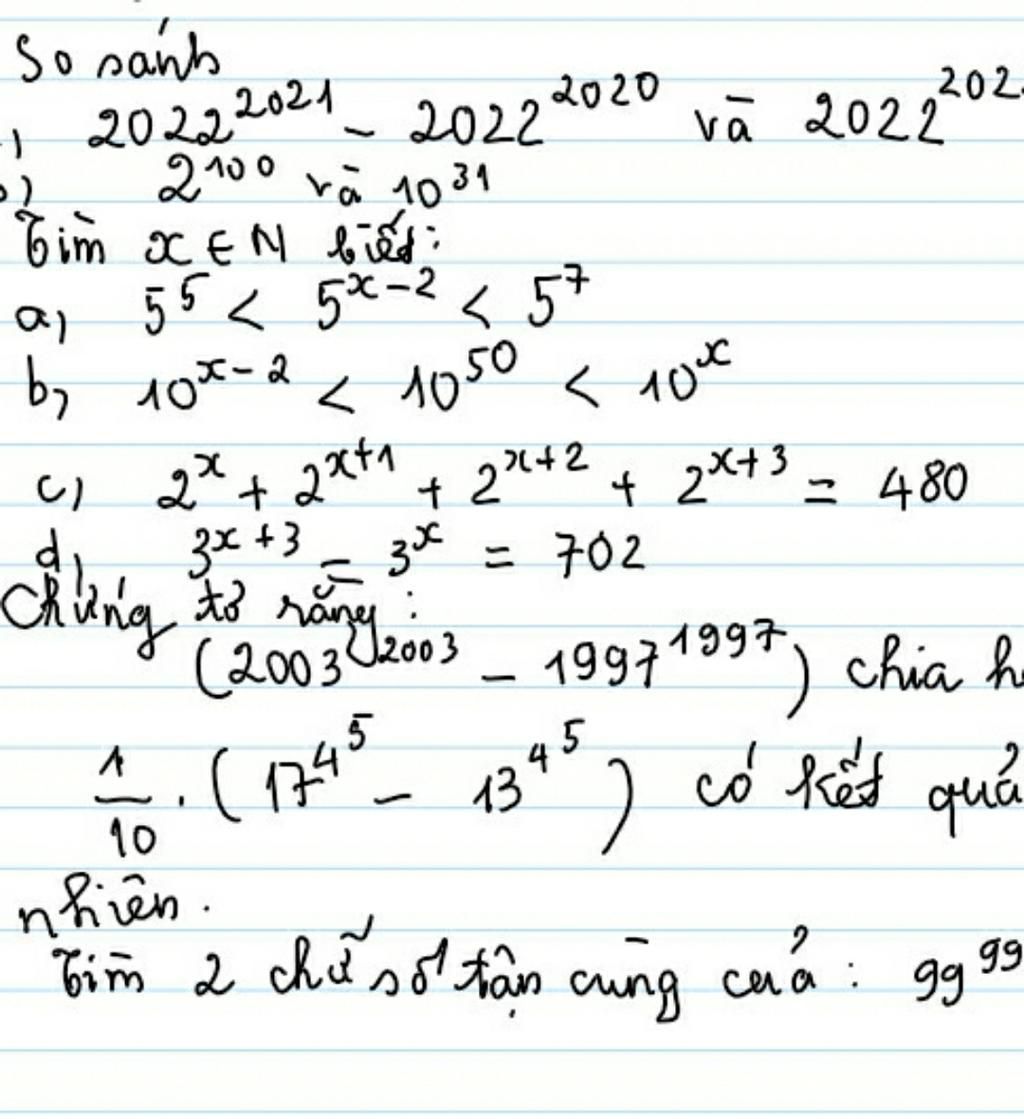 So sánh
) 2022^2021 - 2022^2020 và 2022^202
b) 2^100 và 10^31
Tìm x ∈ N biết:
a) 5^5 < 5^(x-2) < 5^7
b) 10^(x-2) < 10^50 < 10^x
c) 2^x + 2^(x+1) + 2^(x+2) + 2^(x+3) = 480
d) 3^(x+3) - 3^x = 702
Chứng tỏ rằng:
(2003^2003 - 1997^1997) chia h
1/10 . (17^4^5 - 13^4^5) có kết quả
nhiên.
Tìm 2 chữ số tận cùng của: 99^99